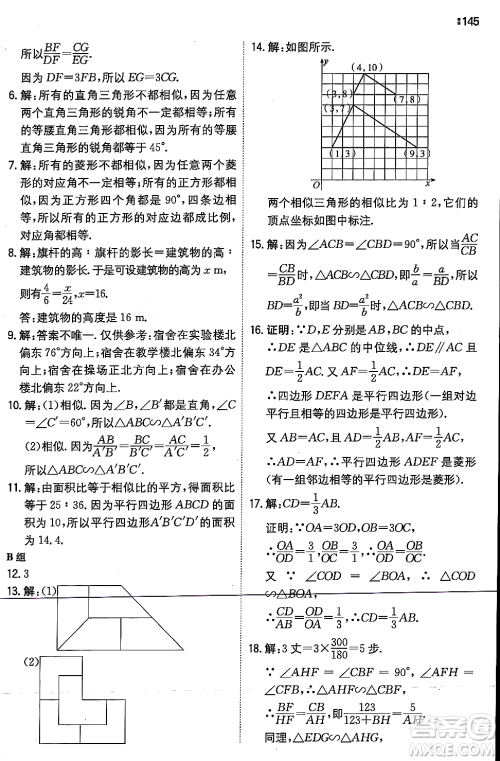 145
所以BF/DF=CG/EG.
因为 DF=3FB,所以 EG=3CG.
6. 解:所有的直角三角形不都相似,因为任意
两个直角三角形的锐角不一定对应相等;所
有的等腰直角三角形都相似,因为所有的等腰
直角三角形的锐角都等于 45°.
7. 解:所有的菱形不都相似,因为任意两个菱形
的对应角不一定相等;所有的正方形都相似,
因为所有的正方形的对应角为 90°,四条边都
相等,所以所有的正方形的对应边都成比例,
对应角都相等.
8. 解:旗杆的高∶旗杆的影长=建筑物的高∶
建筑物的影长.设建筑物的高度为 x m,
则4/6=x/24,x=16.
答:建筑物的高度是 16 m.
9. 解:答案不唯一.仅供参考:宿舍在实验楼北
偏东 76°方向上;宿舍在教学楼北偏东 34°方
向上;宿舍在操场正北方向上;宿舍在办公
楼北偏东 22°方向上.
10. 解:(1)相似.因为∠B、∠B′都是直角,
∠C=∠C′=60°,所以△ABC∽△A′B′C′.
(2)相似.因为AB/A′B′=BC/B′C′=AC/A′C′=1/2,
所以△ABC∽△A′B′C′.
11. 解:由面积比等于相似比的平方,得面积比
等于 25∶36.因为平行四边形ABCD的面积
为 10,所以平行四边形 A′B′C′D′的面积
为 14.4.
B 组
12. 3
13. 解:(1)
(2)
14. 解:如图所示.
y
(4,10)
(3,8)
(7,8)
(3,7)
(1,3)
(9,3)
O
x
两个相似三角形的相似比为 1∶2,它们的
顶点坐标如图中标注.
15. 解:因为∠ACB=∠CBD=90°,所以当AC/CB
=CB/BD,即a/b=b/BD时,△ABC∽△CDB,所以
BD=b²/a.所以当 BD=b²/a时,△ABC∽△CDB.
16. 证明:∵D,E 分别是 AB,BC 的中点,
∴DE 是△ABC 的中位线,∴DE∥AC 且
DE=1/2AC.又∵AF=1/2AC,∴DE=AF,
∴四边形 DEFA 是平行四边形(一组对
边平行且相等的四边形是平行四边形).
又∵AB=AC,∴AD=1/2AB=1/2AC=AF,
∴AD=AF,∴平行四边形 ADEF 是菱形
(有一组邻边相等的平行四边形是菱形).
17. 解:CD=1/3AB.
证明:∵OA=3OD,OB=3OC,
∴OD/OA=1/3,OC/OB=1/3,∴OD/OA=OC/OB.
又∵∠COD=∠BOA,∴△COD∽
△BOA,∴CD/AB=OD/OA=1/3,∴CD=1/3AB.
18. 解:3 丈=3×300/180=5 步.
∵∠AHF=∠CBF=90°,∠AFH=
∠CFB,∴△AHF∽△CBF,
∴BF/HF=CB/AH,即123/(123+BH)=5/AH.
同理,△EDG∽△AHG,